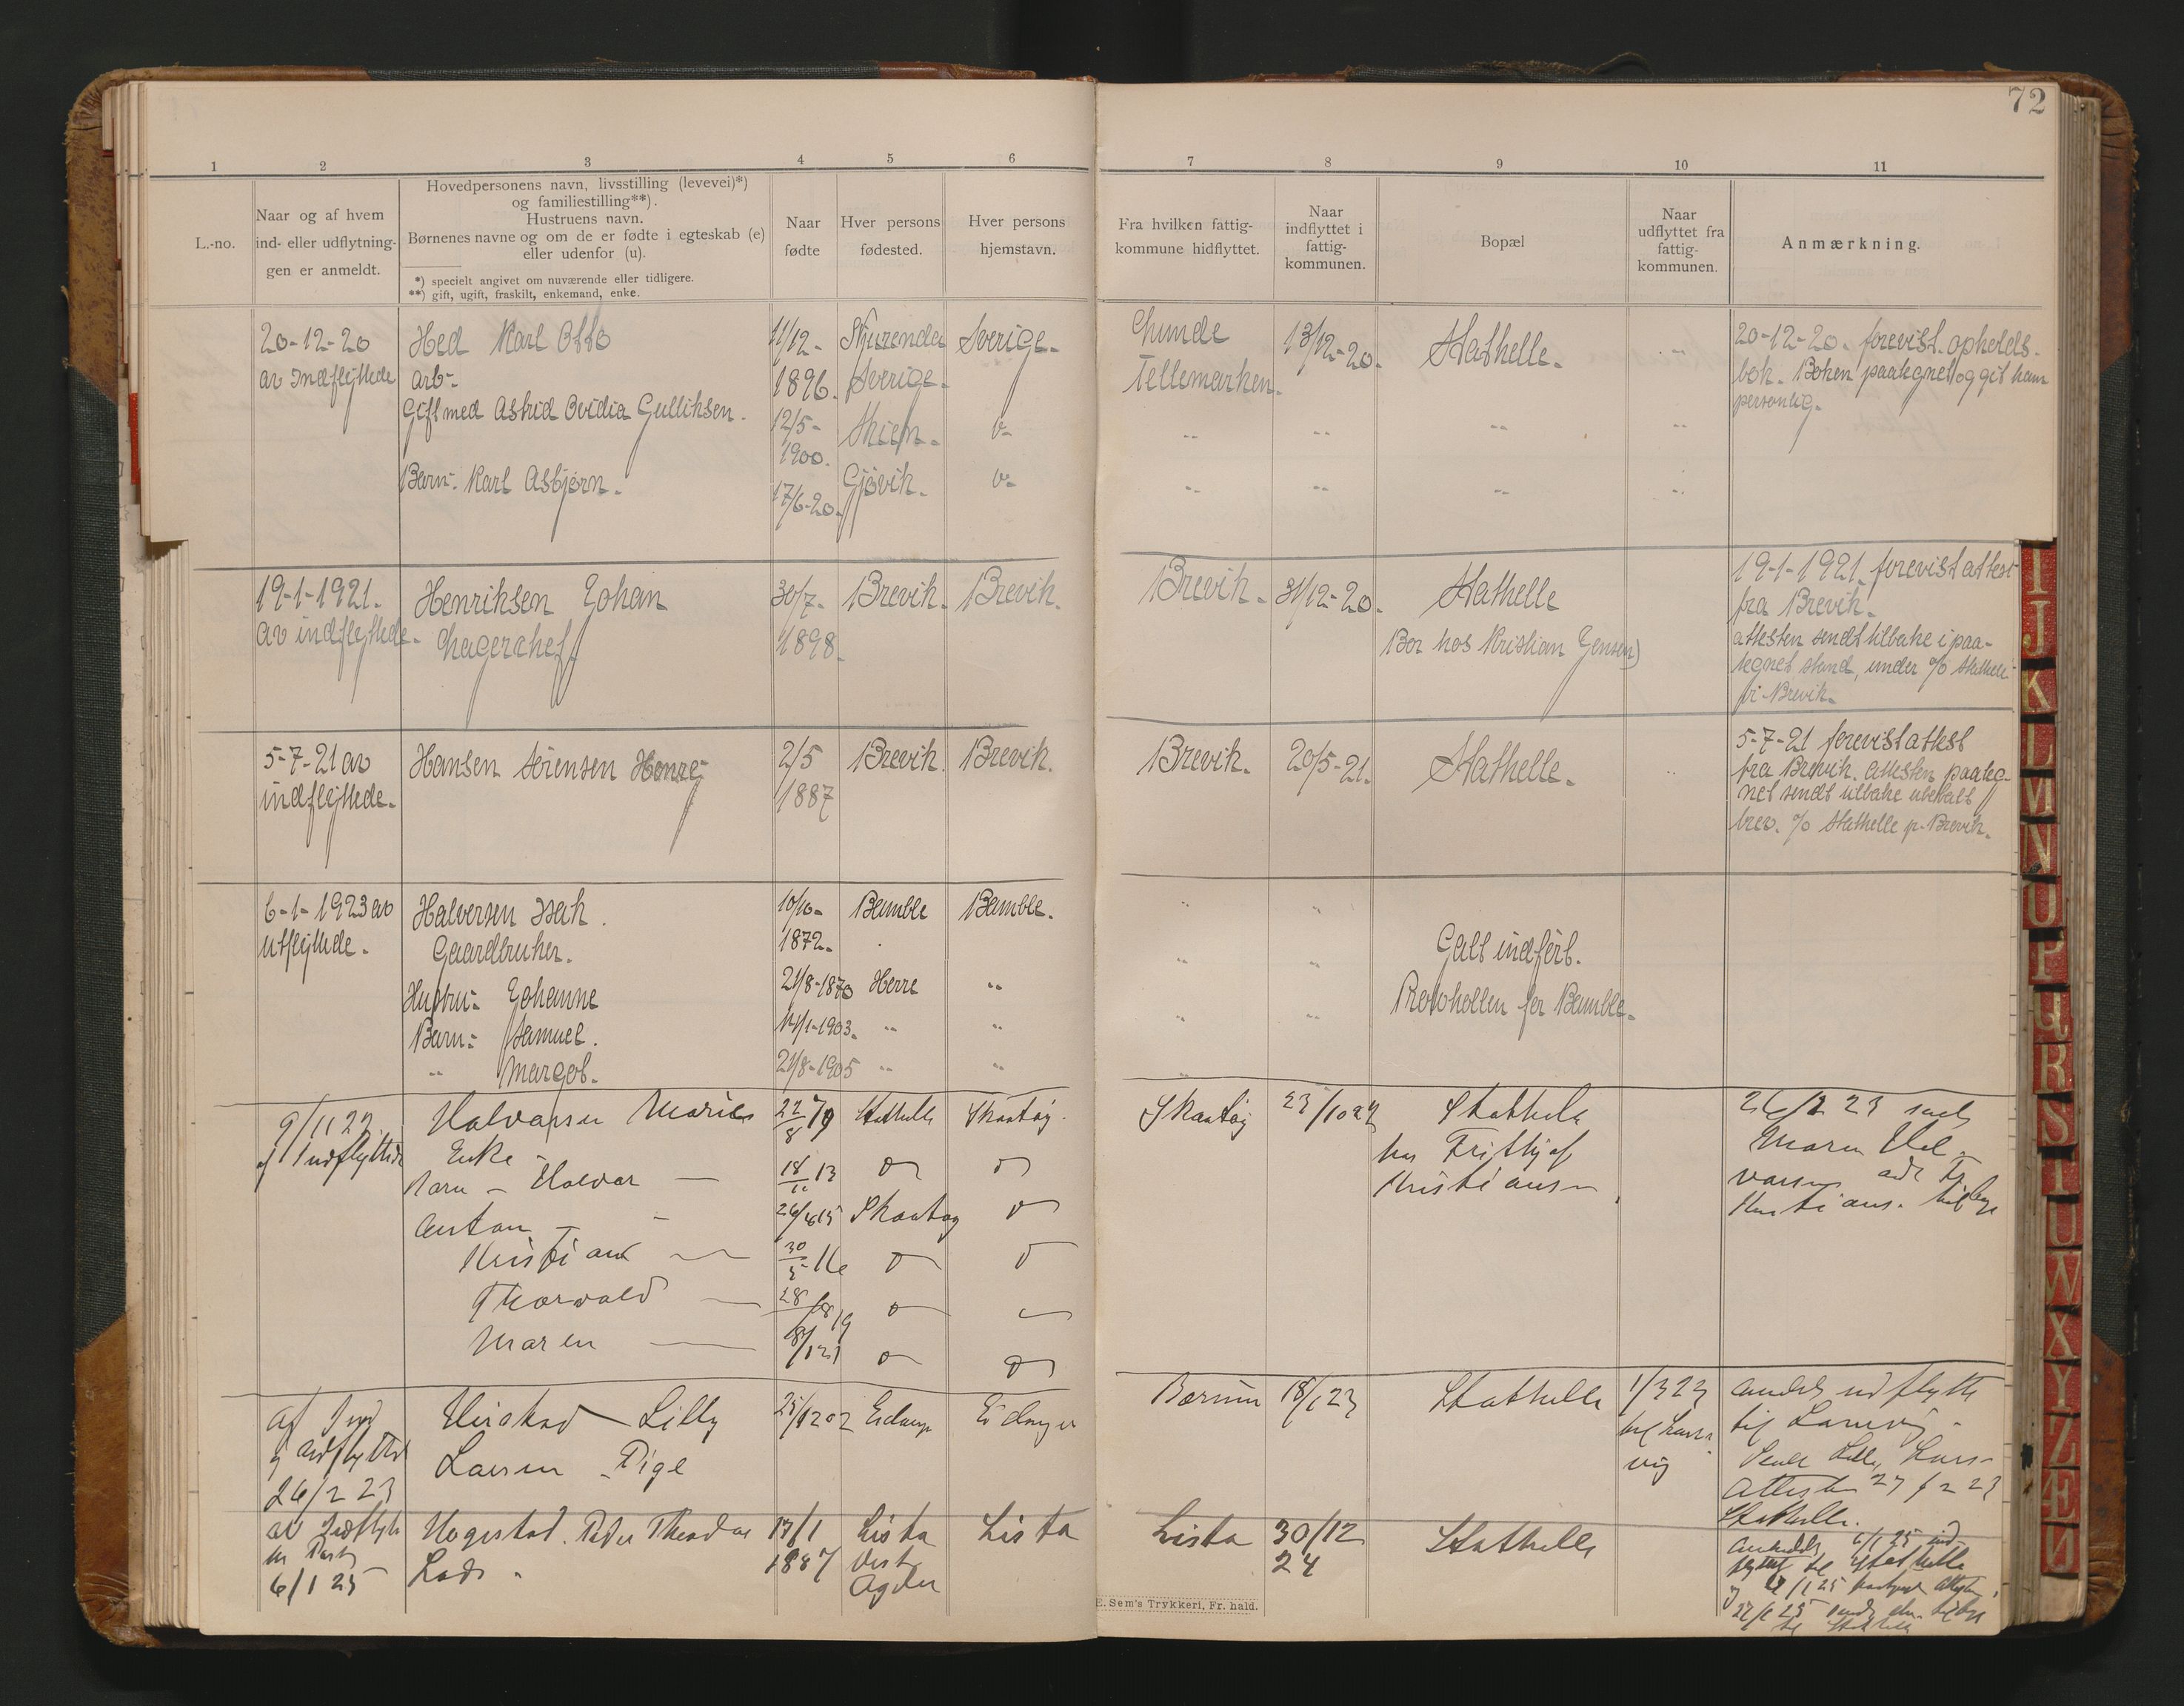 72
1 2 3 4 5 6 7 8 9 10 11
L.-no.
Naar og af hvem
ind- eller udflytning-
gen er anmeldt.
Hovedpersonens navn, livsstilling (levevei)*)
og familiestilling**).
Hustruens navn.
Børnenes navne og om de er fødte i egteskab (e)
eller udenfor (u).
*) specielt angivet om nuværende eller tidligere.
**) gift, ugift, fraskilt, enkemand, enke.
Naar
fødte
Hver persons
fødested.
Hver persons
hjemstavn.
Fra hvilken fattig-
kommune hidflyttet.
Naar
indflyttet i
fattig-
kommunen.
Bopæl
Naar
udflyttet fra
fattig-
kommunen.
Anmærkning.
20-12-20
av Indflyttede
Hed Karl Otto
arb-
Gift med Astrid Ovidia Gulliksen.
Barn-. Karl Asbjørn.
11/12-
1896.
12/5-
1900.
17/6-20.
Sverige.
Skien.
Gjøvik.
Sverige.
Lunde
Tellemarken.
13/12-20.
Stathelle.
20-12-20. forevist opholds-
bok. Boken paategnet og git ham
personlig.
19-1-1921.
av indflyttede.
Henriksen Johan
Lagerchef
30/7-
1898.
Brevik.
Brevik.
Brevik.
31/12-20.
Stathelle
Bor hos Kristian Jensen)
19-1-1921. forevist attest
fra Brevik.
attesten sendt tilbake i paa-
tegnet stand, under % Stathelle
pr. Brevik.
5-7-21 av
indflyttede.
Hansen Sørensen Henry
2/5
1887
Brevik.
Brevik.
Brevik.
20/5-21.
Stathelle.
5-7-21 forevist attest
fra Brevik. attesten paateg-
net sendt tilbake ubetalt
brev. % Stathelle p. Brevik.
6-1-1923 av
utflyttede.
Halvorsen Isak.
Gaardbruker.
Hustru- Johanne
Barn- Samuel.
" Margot.
10/10-
1872.
21/8-1870
14/1-1903.
21/8-1905
Bamble
Herre
Bamble.
Galt indført.
Protokollen for Bamble.
9/11 22.
af Indflyttede
Halvorsen
Enke
Barn - Halvor
Anton
Kristian
Thorvald
Maren
22/8 79
18/11 13
30/5 16
Stathelle
Skaatøy
Skaatøy
Skaatøy
Stathelle
hos Frithjof
Kristiansen
26/2 23
Maren Hal-
varsen
af Ind
og udflyttede
26/2 23
Lilly
Larsen - Pige
Eidanger
Eidanger
Bærum
18/1 23
Stathelle
1/3 23
til Laur-
vig
anmeldt udflytte
til Laurvig -
Attesten 27/2 23
Stathelle.
6/1 25
Hogestad. Peder Theodor
Lods.
13/1
1887
Lista
Vest
Agder
Lista
Lista
30/12
24
Stathelle
Anmeldt 6/1 25 ind-
flyttet til Stathelle
E. Sem's Trykkeri, Fr. hald.
I
J
K
L
M
N
O
P
Q
R
S
T
U
W
X
Y
Z
Æ
Ø